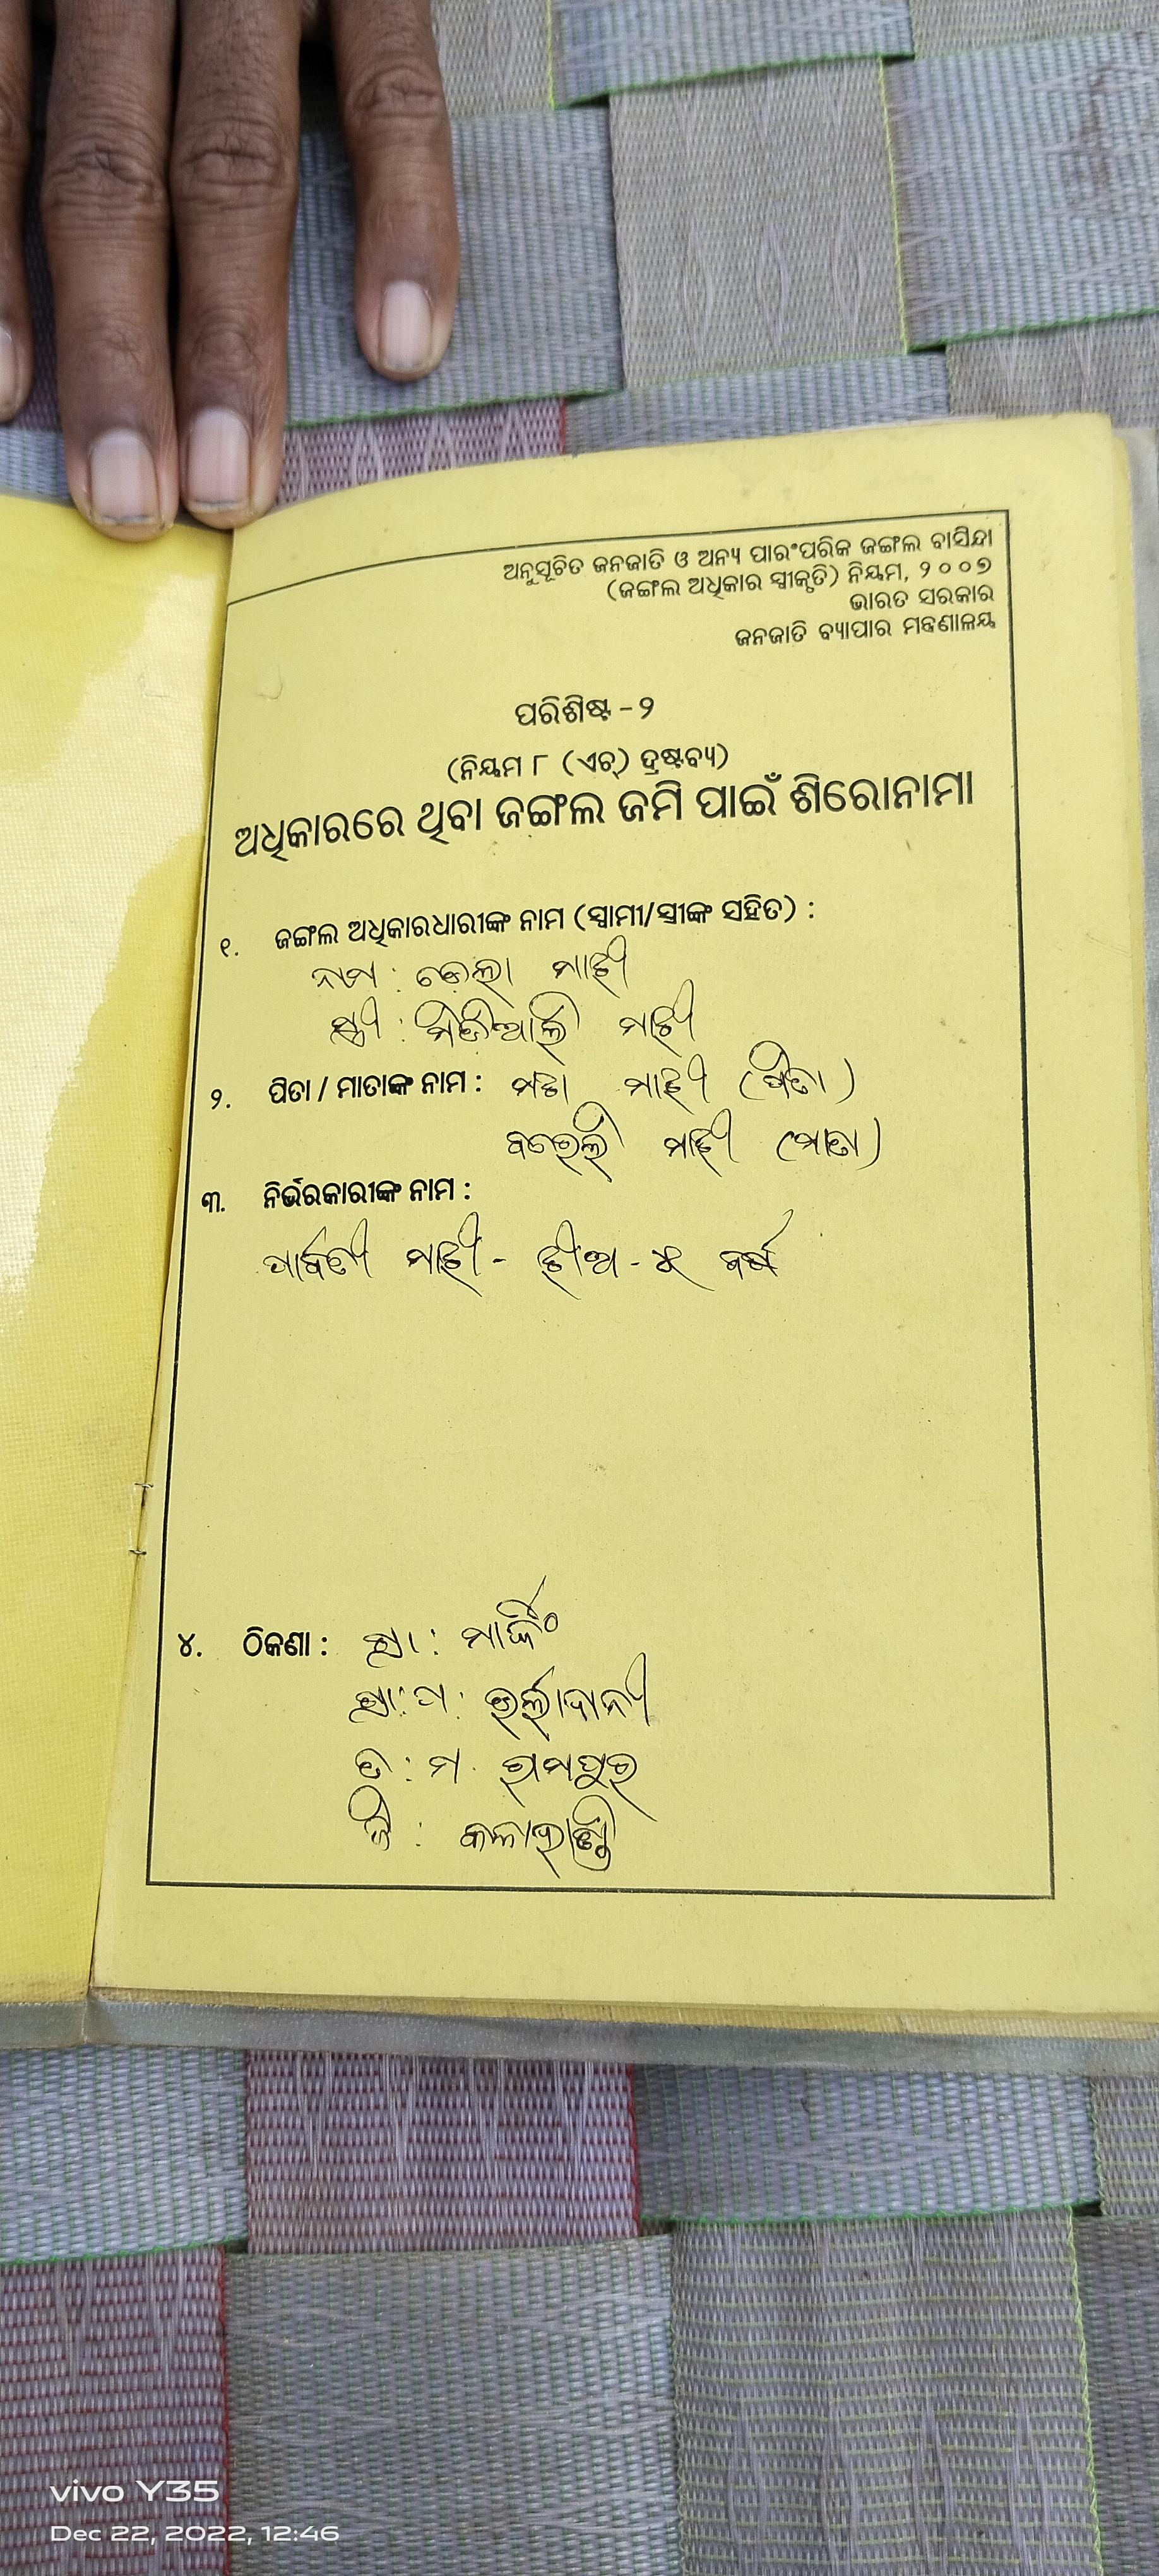 ଅନୁସୂଚିତ ଜନଜାତି ଓ ଅନ୍ୟ ପାରଂପରିକ ଜଙ୍ଗଲ ବାସିନ୍ଦା
(ଜଙ୍ଗଲ ଅଧିକାର ସ୍ଵୀକୃତି) ନିୟମ, ୨୦୦୭
ଭାରତ ସରକାର
ଜନଜାତି ବ୍ୟାପାର ମନ୍ତ୍ରଣାଳୟ
ପରିଶିଷ୍ଟ - ୨
(ନିୟମ ୮ (ଏଚ୍) ଦ୍ରଷ୍ଟବ୍ୟ)
ଅଧିକାରରେ ଥିବା ଜଙ୍ଗଲ ଜମି ପାଇଁ ଶିରୋନାମା
୧. ଜଙ୍ଗଲ ଅଧିକାରଧାରୀଙ୍କ ନାମ (ସ୍ଵାମୀ/ସ୍ତ୍ରୀଙ୍କ ସହିତ) :
ନାମ : ମାଝୀ
ସ୍ତ୍ରୀ : ମାଝୀ
୨. ପିତା / ମାତାଙ୍କ ନାମ : ମାଝୀ (ପିତା)
ମାଝୀ (ମାତା)
୩. ନିର୍ଭରକାରୀଙ୍କ ନାମ :
ପାର୍ବତୀ ମାଝୀ - ଝୀଅ - ୪ ବର୍ଷ
୪. ଠିକଣା : ଗ୍ରା :
ଗ୍ରା: ପ: ଉର୍ଲାଦାନୀ
ତ : ମ. ରାମପୁର
ଜି : କଳାହାଣ୍ଡି
vivo Y35
Dec 22, 2022, 12:46